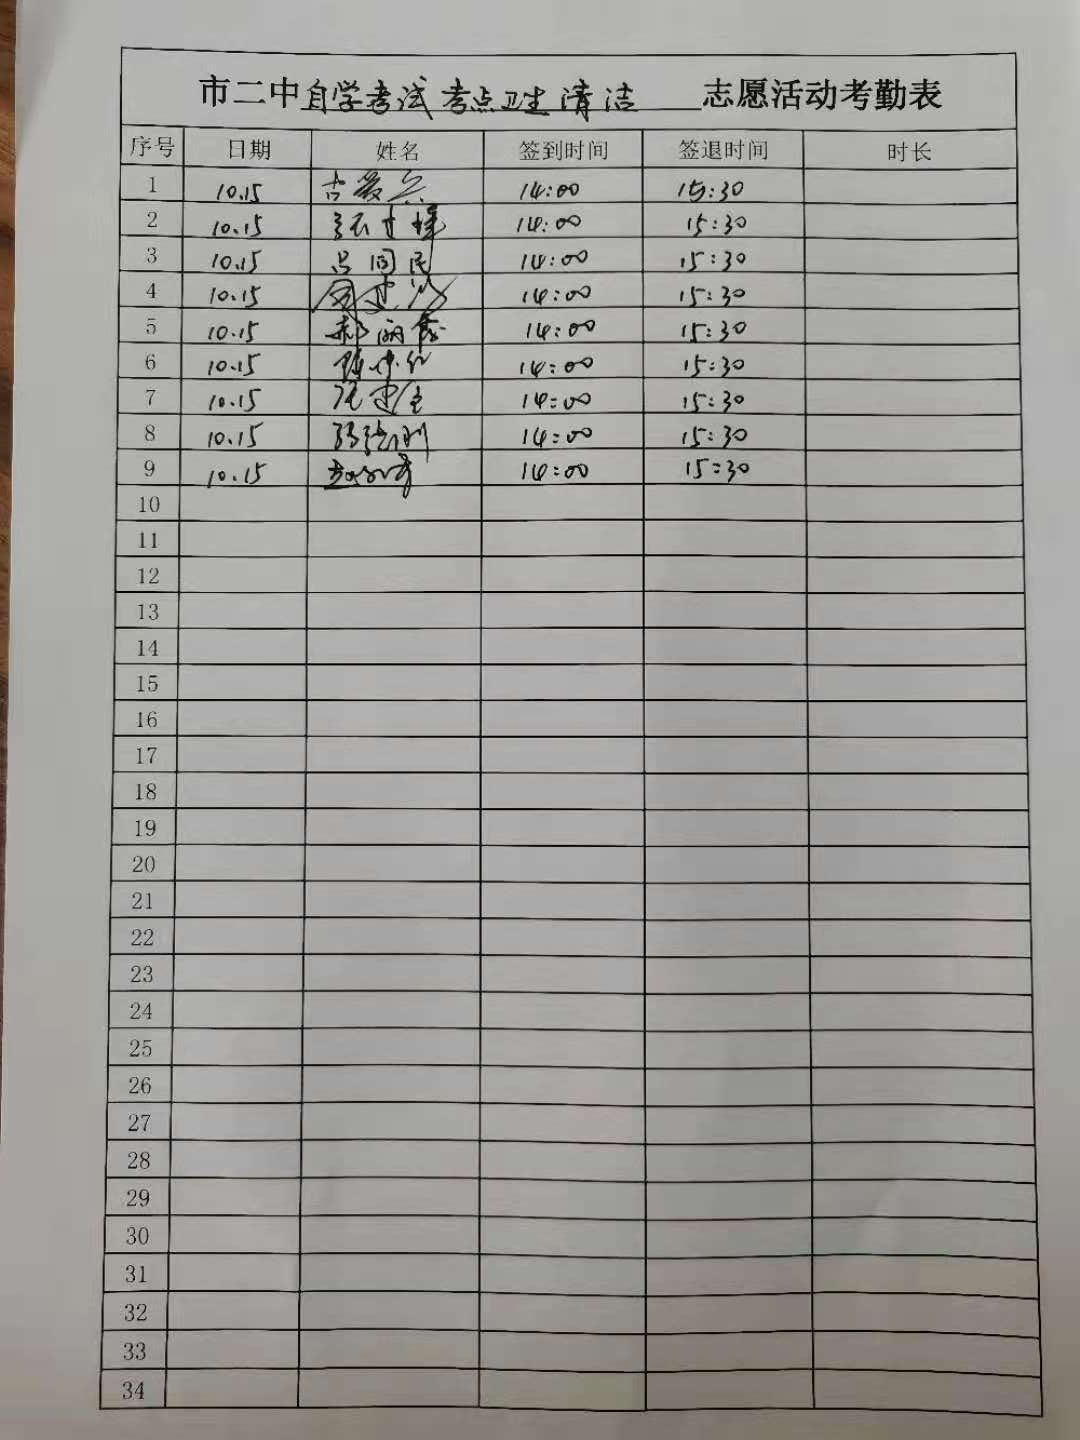 市二中自学考试考点卫生清洁志愿活动考勤表
序号 日期 姓名 签到时间 签退时间 时长
1 10.15 14:00 15:30
2 10.15 14:00 15:30
3 10.15 吕国民 14:00 15:30
4 10.15 14:00 15:30
5 10.15 14:00 15:30
6 10.15 14:00 15:30
7 10.15 14:00 15:30
8 10.15 14:00 15:30
9 10.15 14:00 15:30
10
11
12
13
14
15
16
17
18
19
20
21
22
23
24
25
26
27
28
29
30
31
32
33
34